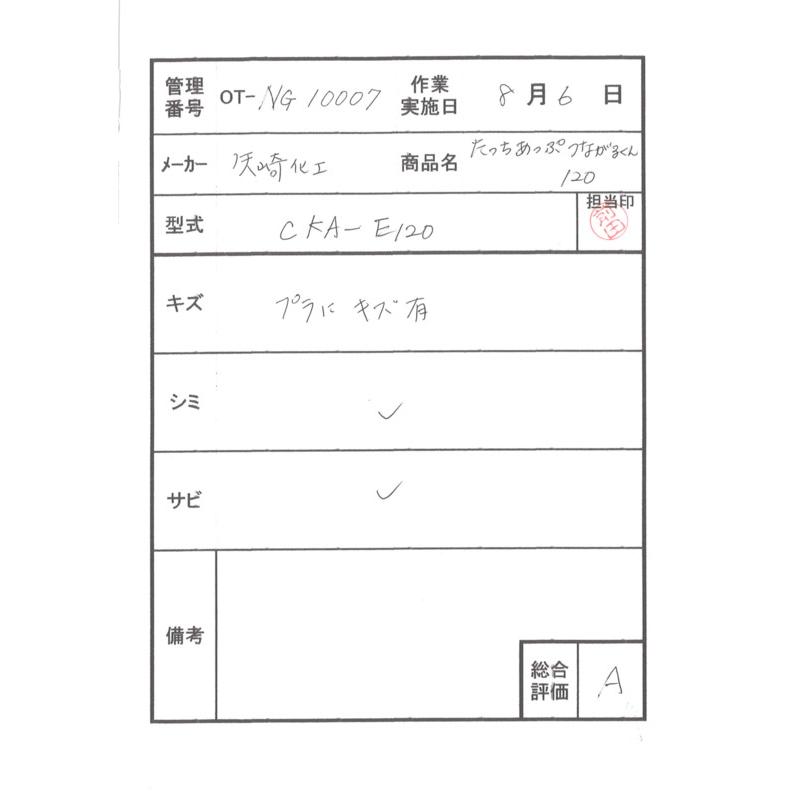 管理番号 OT-NG10007 作業実施日 8月6日
メーカー 矢崎化工 商品名 たっちあっぷつながるくん
120
型式 CKA-E120 担当印
キズ プラにキズ有
シミ ✓
サビ ✓
備考
総合評価 A